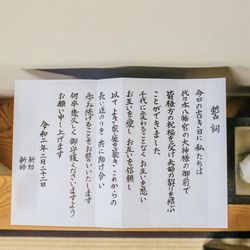 誓詞
今日の古き日に私たちは
代々木八幡宮の大神様の御前で
皆様方の祝福を受け夫婦の契りを結ぶ
ことができました
千代に変わることなくお互いを思い
お互いを愛しお互いを信頼し
以てよき家庭を築きこれからの
長い道のりを共に助け合い
歩み続けることをお誓いいたします
何卒幾久しく御守護くださいますよう
お願い申し上げます
令和二年二月二十二日
新郎
新婦